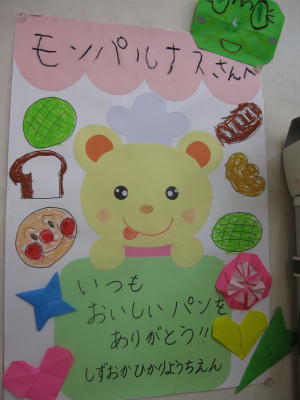 モンパルナスさんへ
いつも
おいしいパンを
ありがとう!!
しずおかひかりようちえん